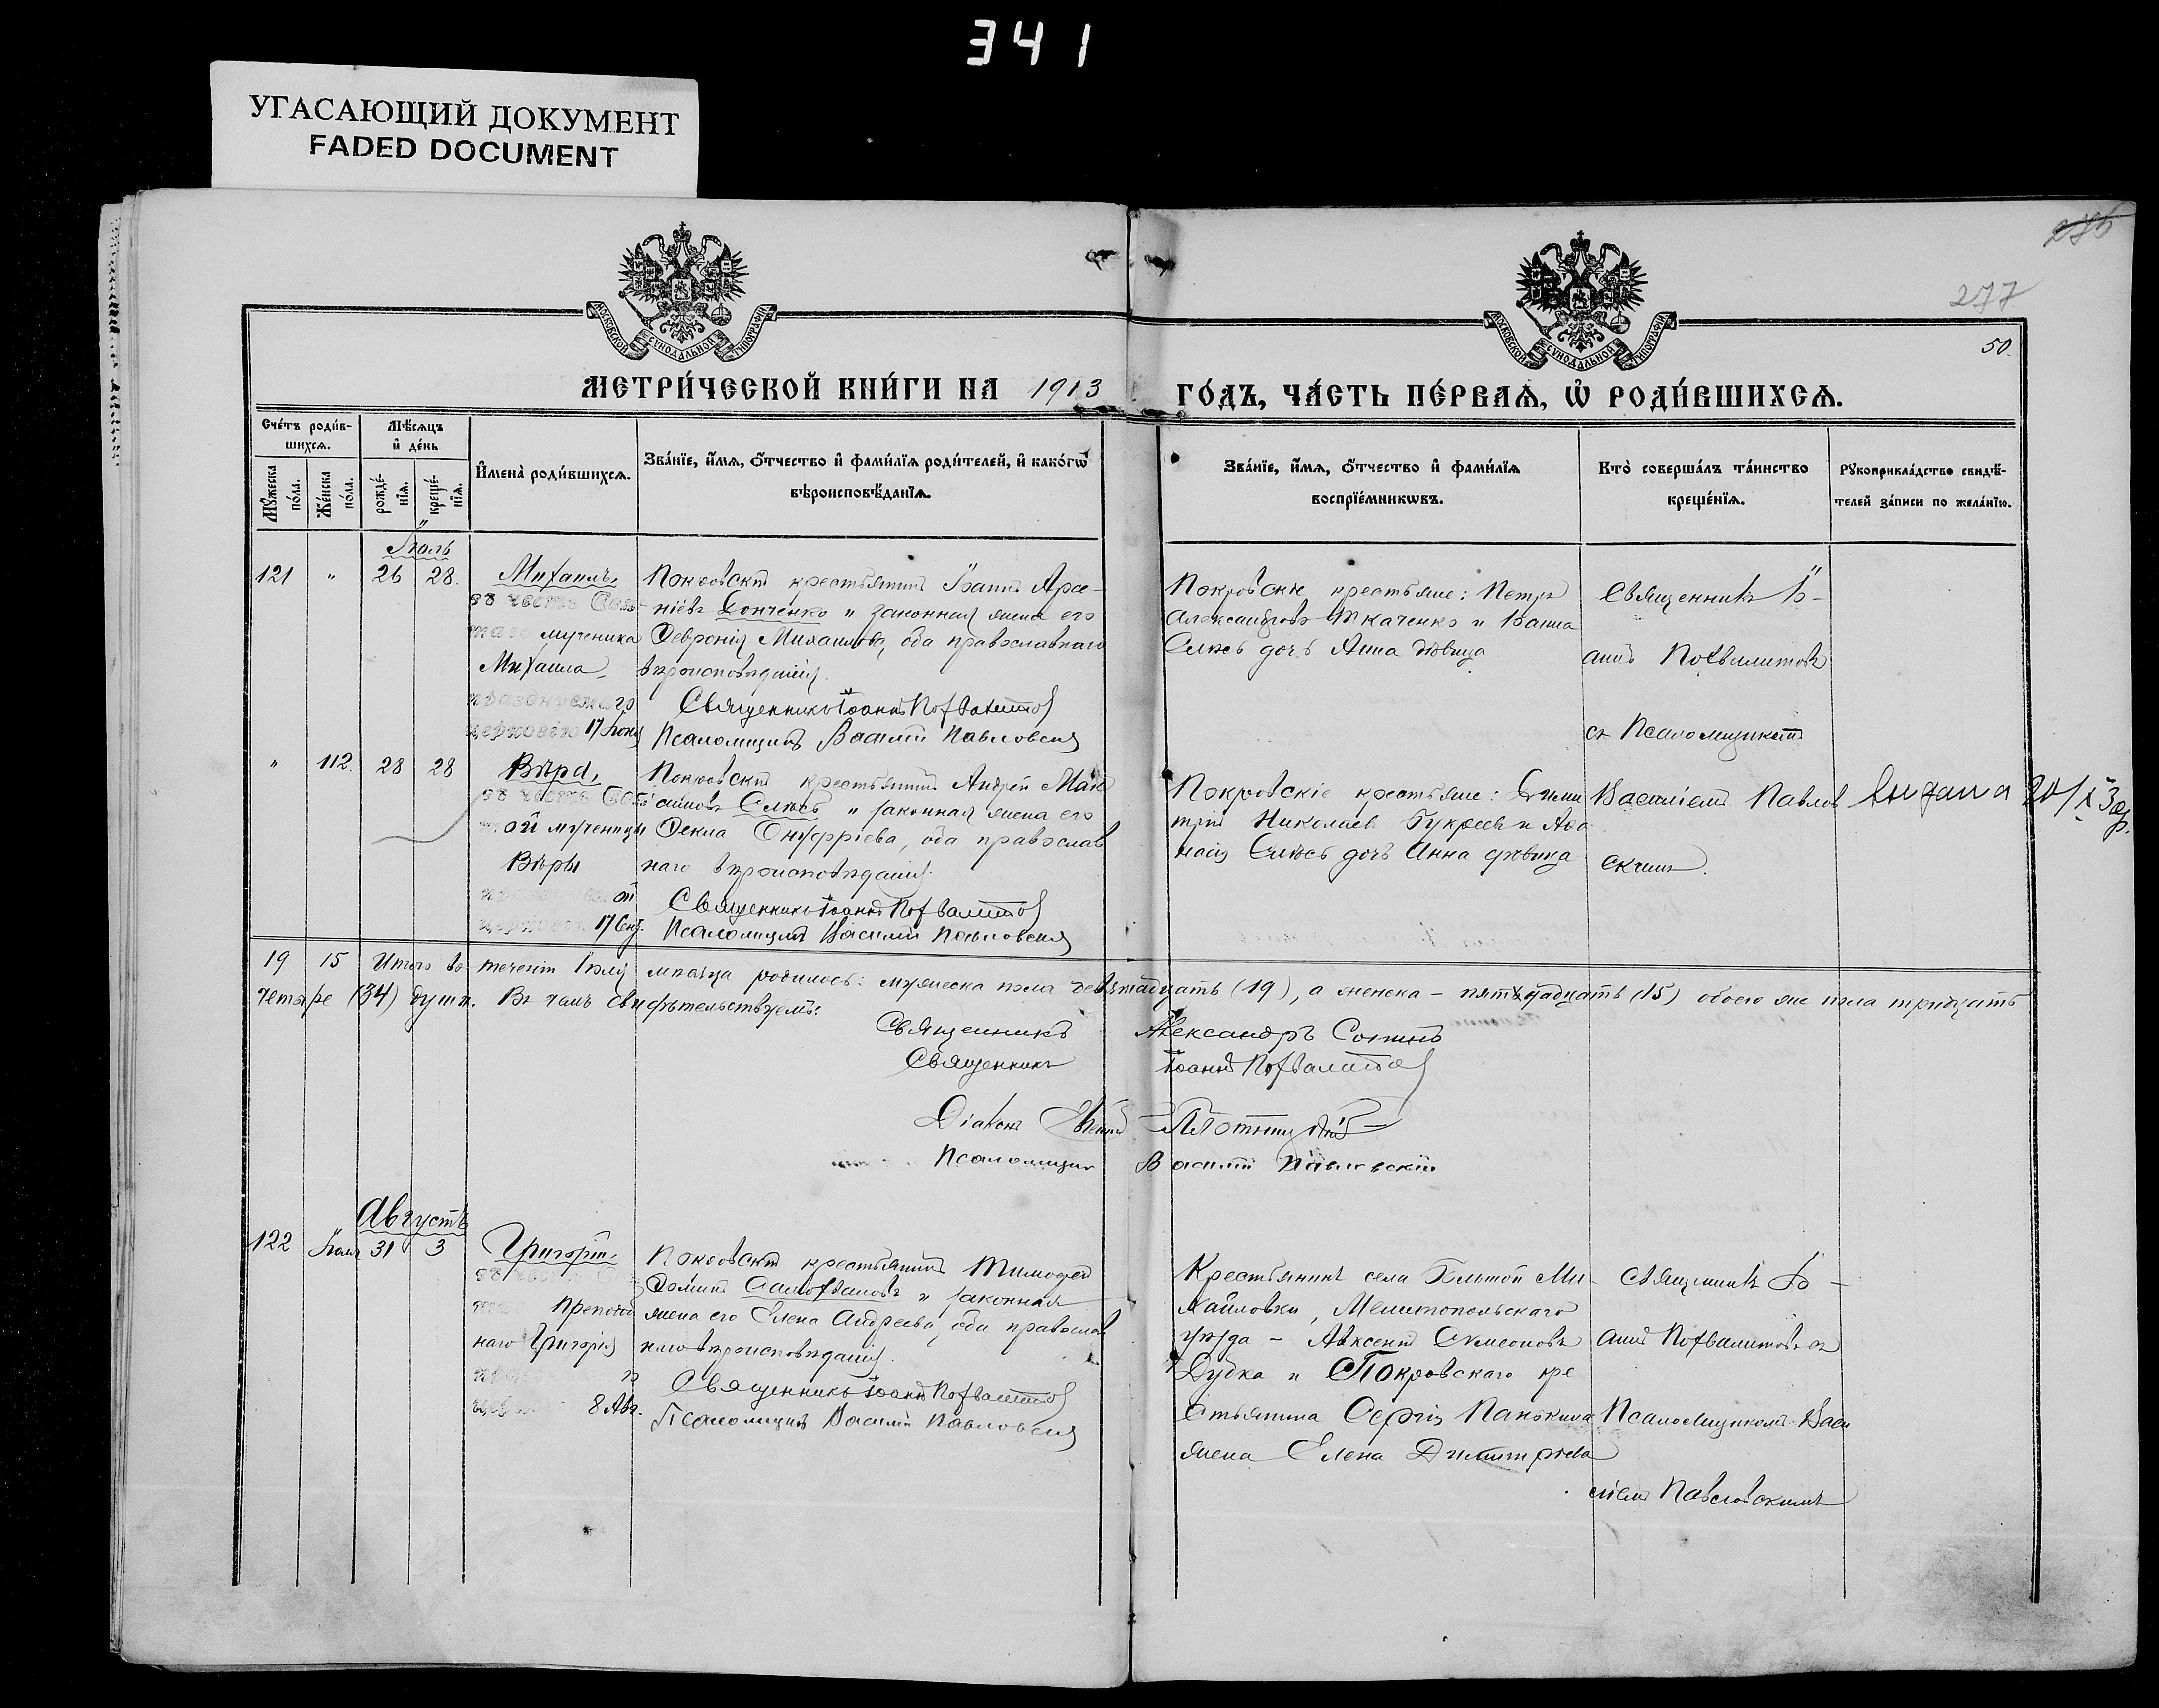 341
УГАСАЮЩИЙ ДОКУМЕНТ
FADED DOCUMENT
277
50.
МОСКОВСКОЙ СУНОДАЛЬНОЙ ТИПОГРАФІИ
МОСКОВСКОЙ СУНОДАЛЬНОЙ ТИПОГРАФІИ
МЕТРИ́ЧЕСКОЙ КНИ́ГИ НА 1913 ГО́ДЪ, ЧА́СТЬ ПЕ́РВАѦ, Ѽ РОДИ́ВШИХСѦ.
Сче́тъ роди́в-
шихсѧ.
Мѣ́сѧцъ
и҆ де́нь
Мꙋ́жеска по́ла.
Же́нска по́ла.
рожде́-нїѧ.
креще́-нїѧ.
И҆мена̀ роди́вшихсѧ.
Зва́нїе, и҆́мѧ, ѻ҆́тчество и҆ фами́лїѧ роди́телей, и҆ како́гѡ
вѣроисповѣ́данїѧ.
Зва́нїе, и҆́мѧ, ѻ҆́тчество и҆ фами́лїѧ
воспрїе́мникѡвъ.
Кто̀ соверша́лъ та́инство
креще́нїѧ.
Рꙋкоприкла́дство свидѣ́-
телей за́писи по жела́нїю.
Іюль
121 " 26 28.
Михаилъ,
въ честь Свя-
таго мученика
Михаила,
празднуемаго
церковію 17 Іюня
Покровскій крестьянинъ Іоаннъ Арсе-
ніевъ Донченко и законная жена его
Февронія Михаилова, оба православнаго
вѣроисповѣданія.
Священникъ Іоаннъ Похвалитовъ
Псаломщикъ Василій Павловскій
Покровскіе крестьяне: Петръ
Александровъ Ткаченко и Іоанна
Слюсь дочь Анна дѣвица
Священникъ Іо-
аннъ Похвалитовъ
съ Псаломщикомъ
" 112. 28 28
Вѣра,
въ честь Свя-
той мученицы
Вѣры
ой
церковію 17 Сен.
Покровскій крестьянинъ Андрей Мак-
симовъ Слюсь и законная жена его
Фекла Онуфріева, оба православ
наго вѣроисповѣданія.
Священникъ Іоаннъ Похвалитовъ
Псаломщикъ Василій Павловскій
Покровскіе крестьяне: Дими
трій Николаевъ Букреевъ и Афа
насія Слюсь дочь Анна дѣвица
Василіемъ Павлов
скимъ.
Выдана
19 15 Итого въ теченіи Іюля мѣсяца родилось: мужеска пола девятнадцать (19), а женска – пятнадцать (15) обоего же пола тридцать
четыре (34) душъ. Въ чемъ свидѣтельствуемъ:
Священникъ Александръ
Священникъ Іоаннъ Похвалитовъ
Діаконъ
Псаломщикъ Василій Павловскій
Августъ
122 Іюля 31 3
Григорій,
въ честь
Преподоб
наго Григорія
8 Авг.
Покровскій крестьянинъ Тимофей
Самофаловъ и законная
жена его Елена Андреева, оба православ
наго вѣроисповѣданія.
Священникъ Іоаннъ Похвалитовъ
Псаломщикъ Василій Павловскій
Крестьянинъ села Бѣлой Ми-
хайловки, Мелитопольскаго
уѣзда – Авксентій Симеоновъ
Дудка и Покровскаго кре
стьянина Сергія Панькина
жена Елена Димитріева
Священникъ Іо-
аннъ Похвалитовъ съ
Псаломщикомъ Васи
ліемъ Павловскимъ